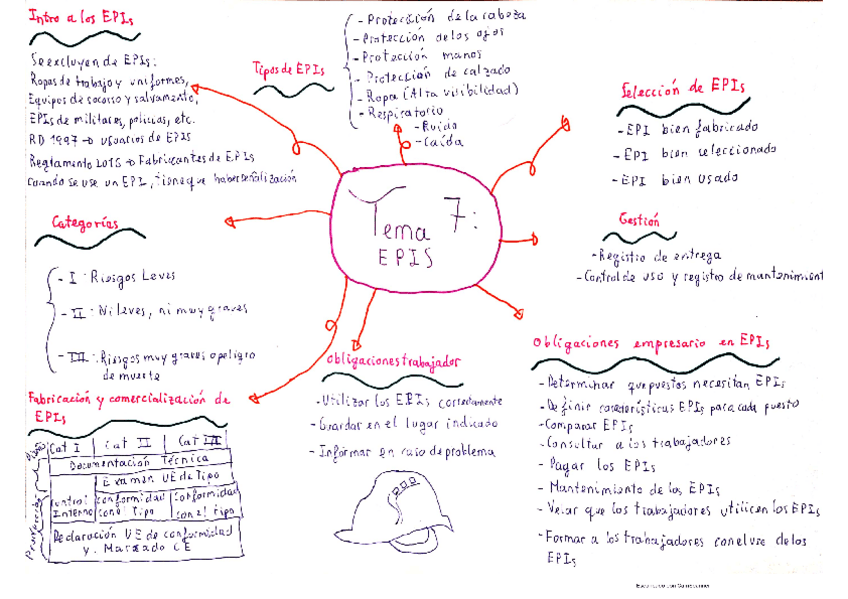 Intro a los EPIs
Se excluyen de EPIs:
Ropas de trabajo y uniformes,
Equipos de socorro y salvamento,
EPIs de militares, policias, etc.
RD 1997 → usuarios de EPIS
Reglamento 2016 → Fabricantes de EPIs
Cuando se use un EPI, tiene que haber señalización
Tipos de EPIs
- Protección de la cabeza
- Protección de los ojos
- Protección manos
- Protección de calzado
- Ropa (Alta visibilidad)
- Respiratorio
- Ruido
- Caída
Selección de EPIs
- EPI bien fabricado
- EPI bien seleccionado
- EPI bien usado
Tema 7:
EPIS
Categorías
- I: Riesgos Leves
- II: Ni leves, ni muy graves
- III: Riesgos muy graves o peligro
de muerte
Gestión
- Registro de entrega
- Control de uso y registro de mantenimient
Fabricación y comercialización de
EPIs
Cat I Cat II Cat III
Documentación Técnica
Examen UE de Tipo
Control Interno
conformidad con el Tipo
Conformidad con el Tipo
Declaración UE de conformidad
y Marcado CE
Obligaciones trabajador
- Utilizar los EPIs correctamente
- Guardar en el lugar indicado
- Informar en caso de problema
Obligaciones empresario en EPIs
- Determinar que puestos necesitan EPIs
- Definir características EPIs para cada puesto
- Comparar EPIs
- Consultar a los trabajadores
- Pagar los EPIs
- Mantenimiento de los EPIs
- Velar que los trabajadores utilicen los EPIs
- Formar a los trabajadores con el uso de los
EPIs
Escaneado con CamScanner